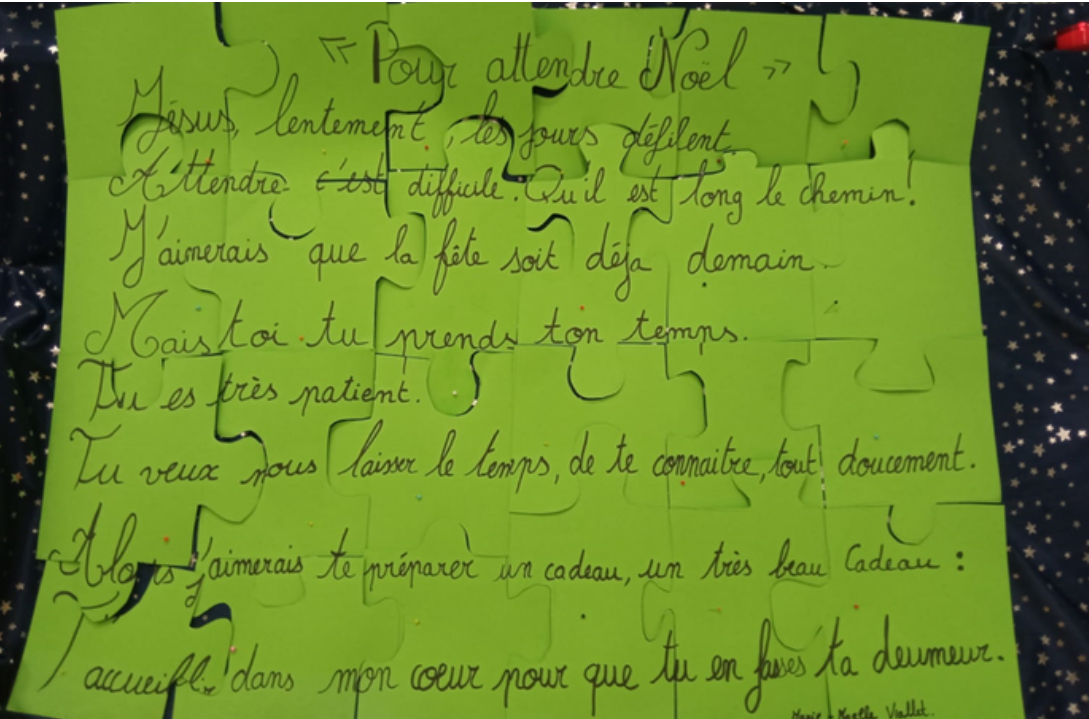 « Pour attendre Noël »
Jésus, lentement, les jours défilent
Attendre c'est difficile. Qu'il est long le chemin!
J'aimerais que la fête soit déja demain.
Mais toi tu prends ton temps.
Tu es très patient.
Tu veux nous laisser le temps, de te connaitre, tout doucement.
Alors j'aimerais te préparer un cadeau, un très beau Cadeau :
T'accueillir dans mon cœur pour que tu en fasses ta deumeur.
Viallet.